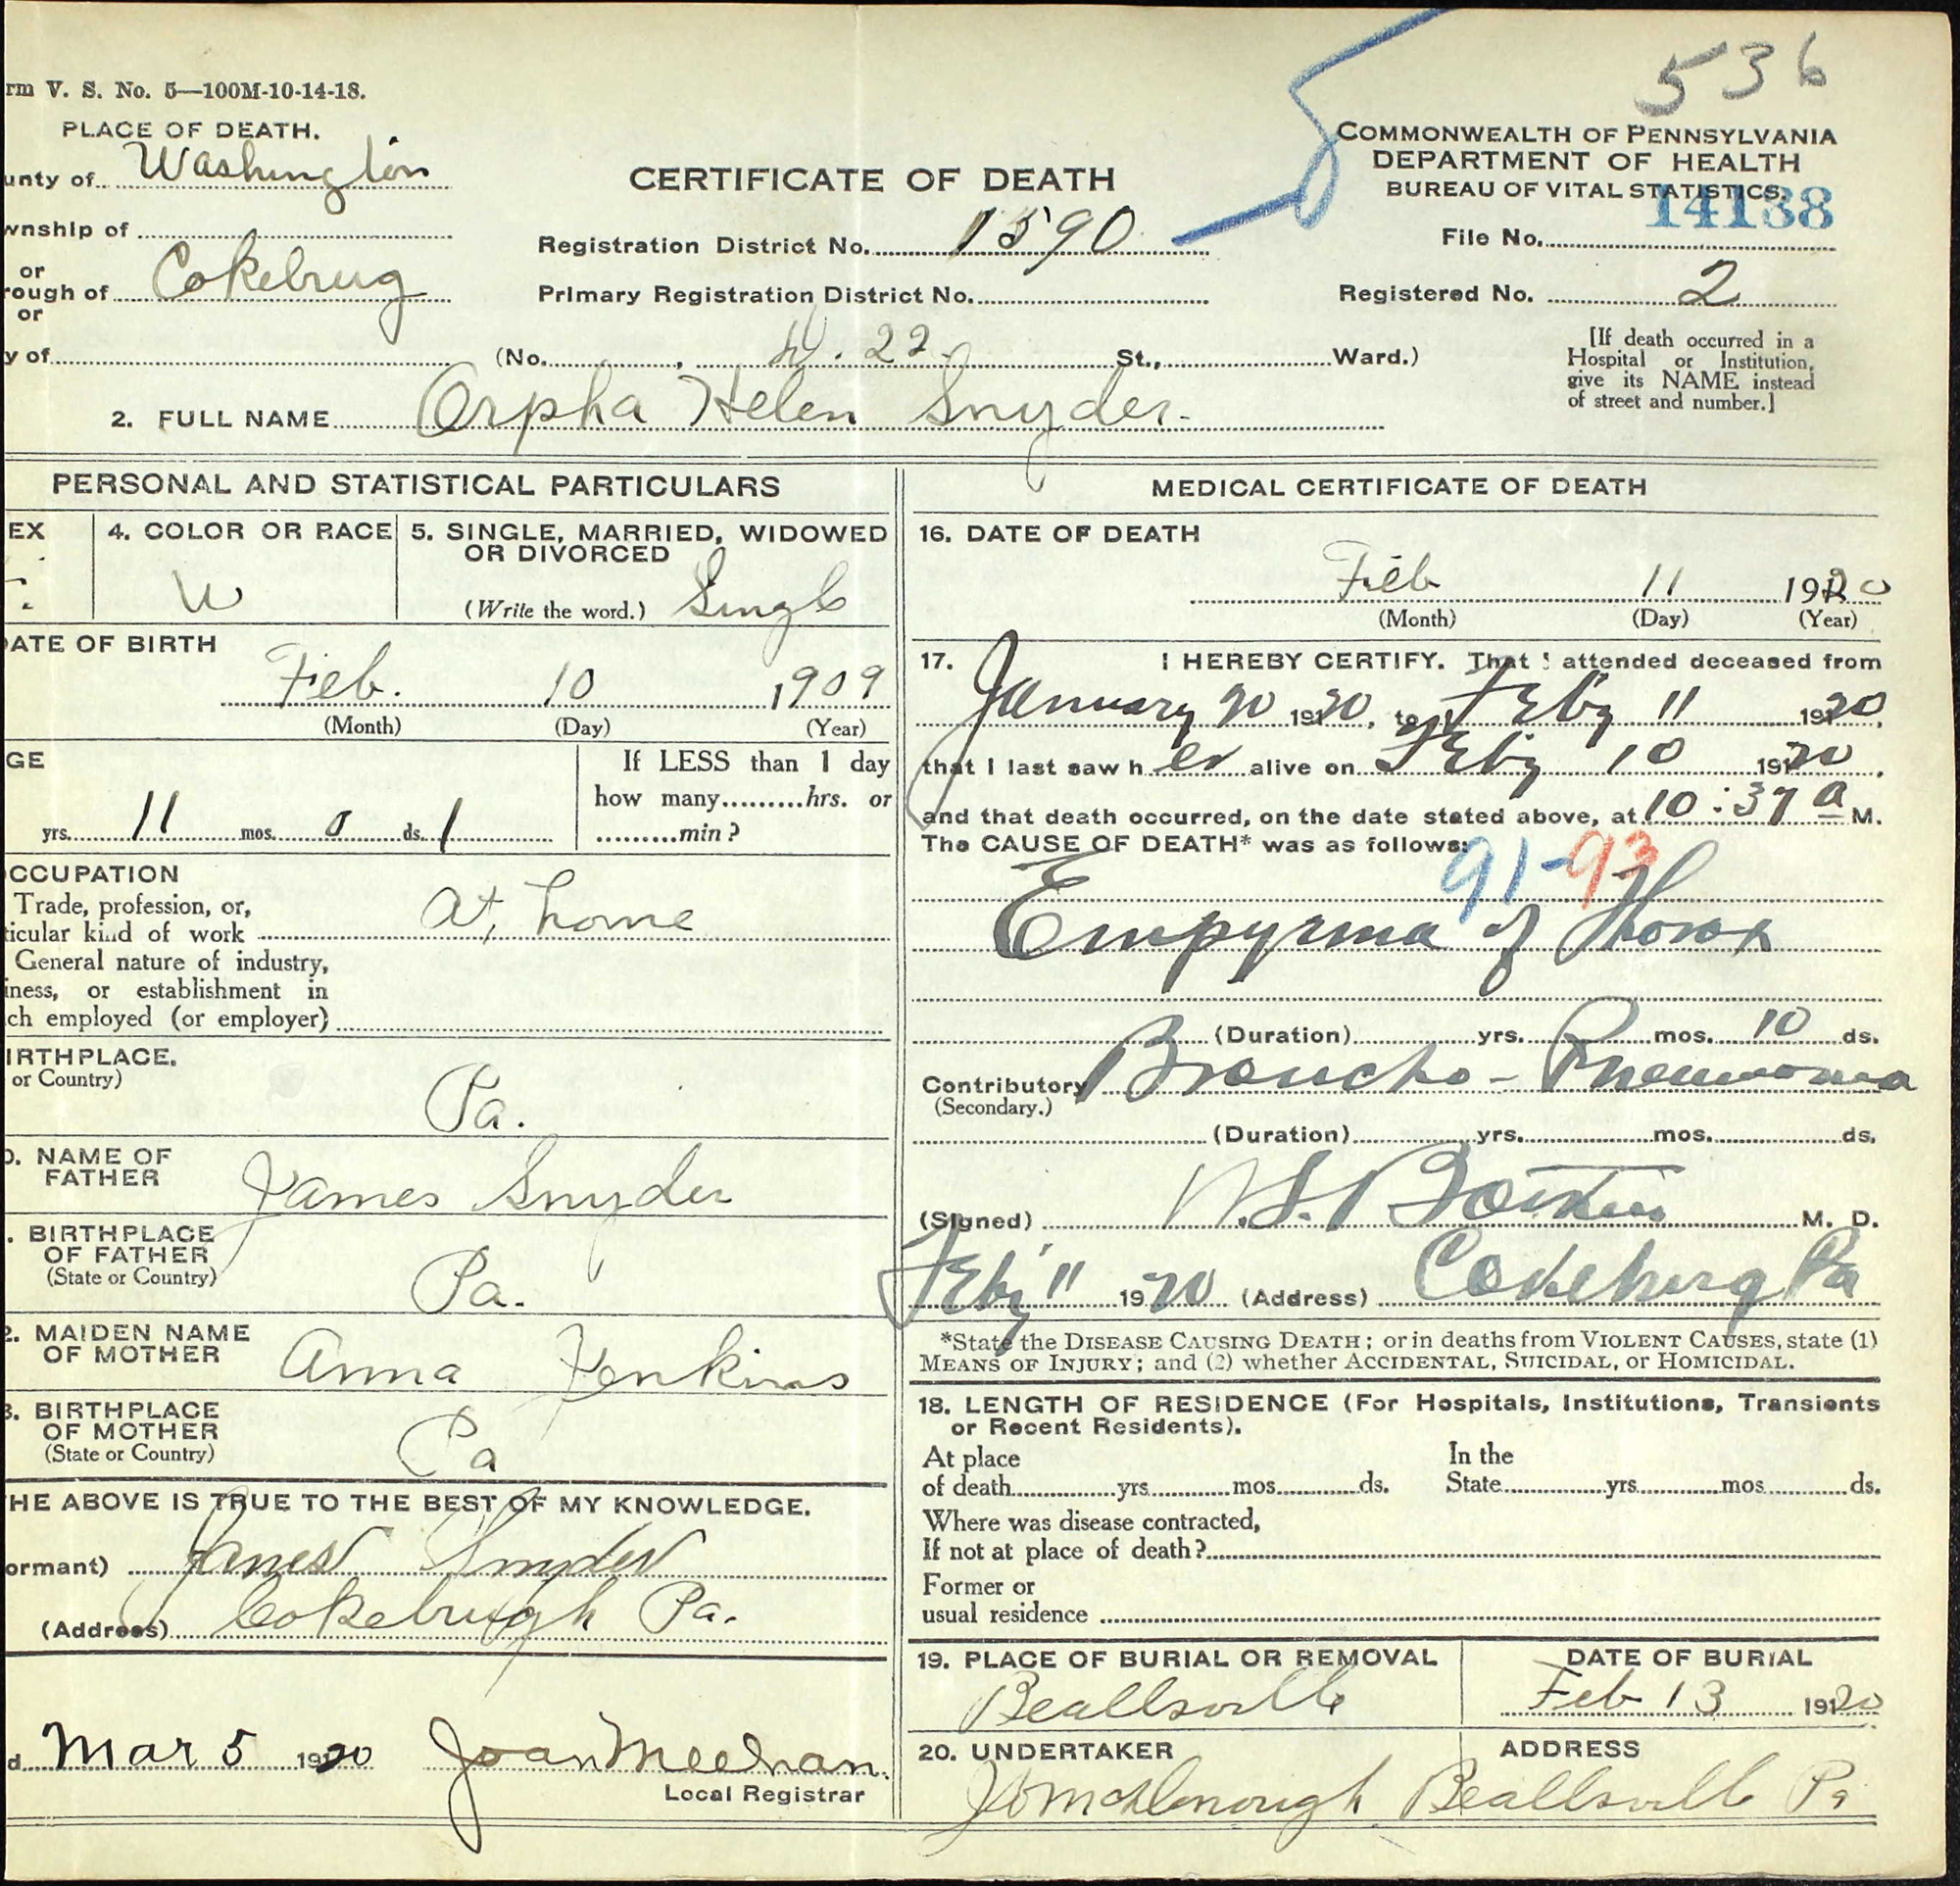 536
rm V. S. No. 5—100M-10-14-18.
PLACE OF DEATH.
unty of Washington
wnship of
or
rough of Cokebrug
or
y of
CERTIFICATE OF DEATH
Registration District No. 1590
Primary Registration District No.
(No. , W. 22. St., Ward.)
COMMONWEALTH OF PENNSYLVANIA
DEPARTMENT OF HEALTH
BUREAU OF VITAL STATISTICS.
14138
File No.
Registered No. 2
[If death occurred in a
Hospital or Institution,
give its NAME instead
of street and number.]
2. FULL NAME Orpha Helen Snyder.
PERSONAL AND STATISTICAL PARTICULARS
EX
F.
4. COLOR OR RACE
W
5. SINGLE, MARRIED, WIDOWED
OR DIVORCED
(Write the word.) Single
DATE OF BIRTH
Feb. 10 1909
(Month) (Day) (Year)
GE
yrs. 11 mos. 0 ds. 1
If LESS than 1 day
how many.........hrs. or
.........min?
OCCUPATION
Trade, profession, or,
ticular kind of work at, home
General nature of industry,
iness, or establishment in
ch employed (or employer)
IRTHPLACE.
or Country)
Pa.
0. NAME OF
FATHER James Snyder
. BIRTHPLACE
OF FATHER
(State or Country)
Pa.
2. MAIDEN NAME
OF MOTHER Anna Jenkins
3. BIRTHPLACE
OF MOTHER
(State or Country)
Pa
HE ABOVE IS TRUE TO THE BEST OF MY KNOWLEDGE.
ormant) James Snyder
(Address) Cokebrugh Pa.
d Mar 5 1920 Joan Meehan.
Local Registrar
MEDICAL CERTIFICATE OF DEATH
16. DATE OF DEATH
Feb 11 1920
(Month) (Day) (Year)
17. I HEREBY CERTIFY. That I attended deceased from
January 20 1920, to Feby 11 1920,
that I last saw h er alive on Feby 10 1920,
and that death occurred, on the date stated above, at 10:37 a M.
The CAUSE OF DEATH* was as follows:
91-93
Empyema of Thorax
(Duration) yrs. mos. 10 ds.
Contributory Broncho-Pneumonia
(Secondary.)
(Duration) yrs. mos. ds.
(Signed) M. D.
Feby 11 1920 (Address) Cokeburg Pa
*State the DISEASE CAUSING DEATH; or in deaths from VIOLENT CAUSES, state (1)
MEANS OF INJURY; and (2) whether ACCIDENTAL, SUICIDAL, or HOMICIDAL.
18. LENGTH OF RESIDENCE (For Hospitals, Institutions, Transients
or Recent Residents).
At place
of death yrs. mos. ds.
In the
State yrs. mos. ds.
Where was disease contracted,
If not at place of death?
Former or
usual residence
19. PLACE OF BURIAL OR REMOVAL
Beallsville
DATE OF BURIAL
Feb 13 1920
20. UNDERTAKER
ADDRESS
Beallsville Pa